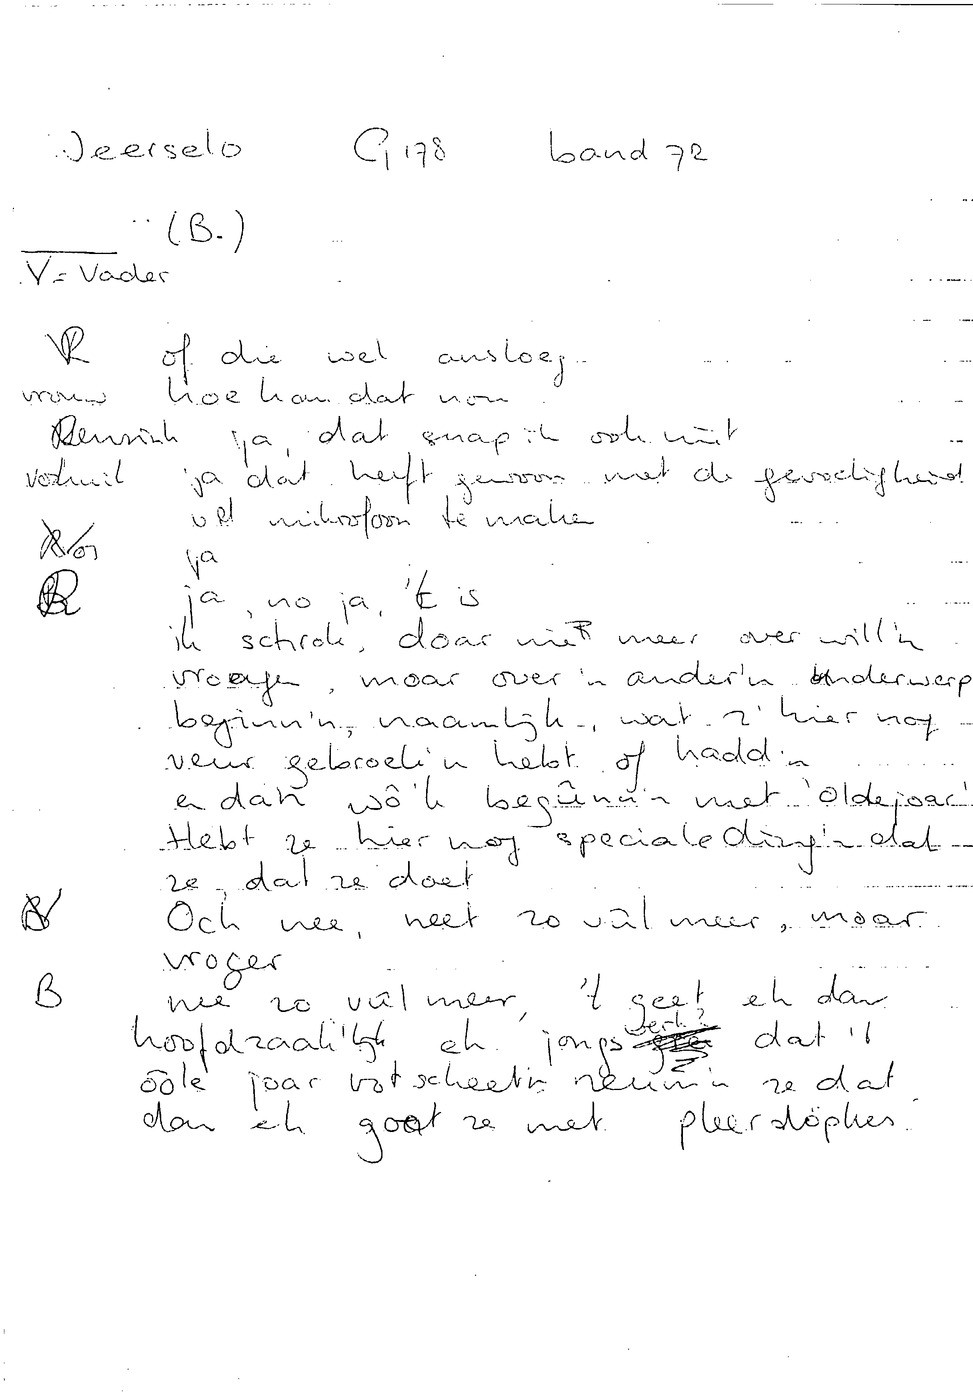 Weerselo G178 band 72
(B.)
V = Vader
R of die wel ansloeg
vrouw hoe kan dat non
ja, dat snap ik ook niit
ja dat heeft gewoon met de gevoeligheid
v/d mikrofoon te maken
ja
R ja, no ja, 't is
ik schrok, doar niet meer over will'n
vroagen, moar over 'n ander'n onderwerp
beginn'n, naamlijk, wat z' hier nog
veur gebroek'n hebt of hadd'n
en dan wô'k begünn'n met 'Oldejoar'
Hebt ze hier nog speciale ding'n dat
ze, dat ze doet
V Och nee, neet zo vûl meer, moar
vroger
B nee zo vûl meer, 't geet eh dan
hoofdzaak'lijk eh jongs dat 't
ôôle joar votscheet'n neum'n ze dat
dan eh goat ze met pleerslöpkes